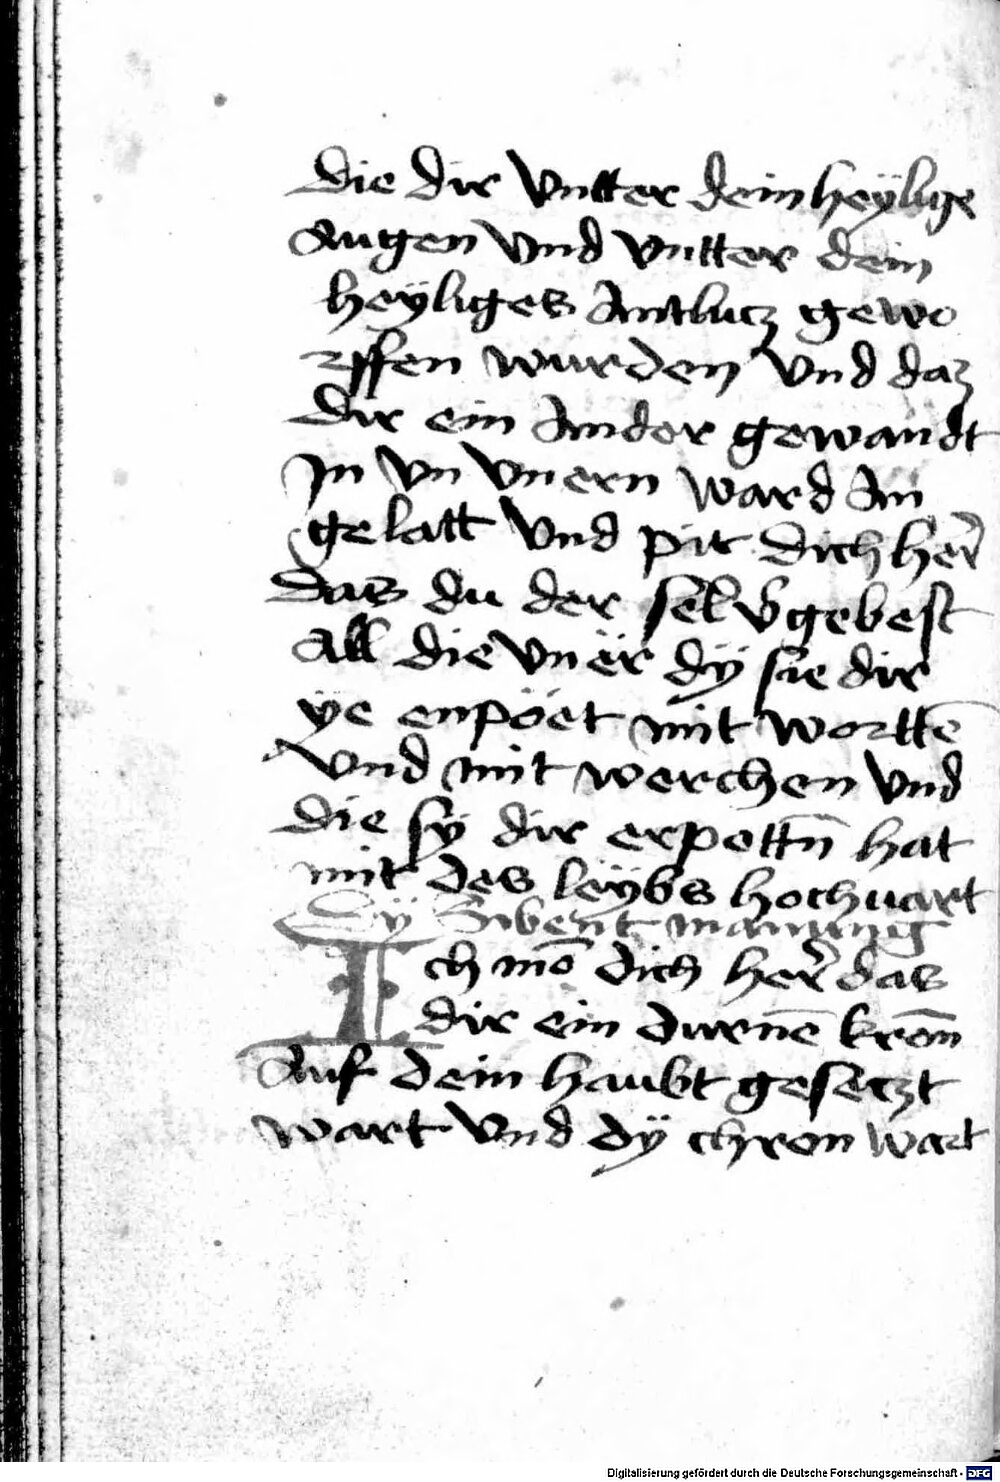 die dir vntter dein heÿlige
Augen vnd vntter dein
heÿliges Antlucz gewo
rffen wurden vnd daz
dir ein Ander gewandt
In vn vnern ward An
gelatt vnd pit dich her̄
das du der sel v̄gebest
All die vner dÿ sie dir
ÿe enpöet mit wortte̅
vnd mit werchen vnd
die sÿ dir erpottn̄ hat
mit des leÿbs hochuart
Dÿ Sibent manung
Ich mo̅ dich her̄ das
dir ein durne̅ kron̄
Auf dein haubt geseczt
wart vnd dÿ chron wart
Digitalisierung gefördert durch die Deutsche Forschungsgemeinschaft - DFG